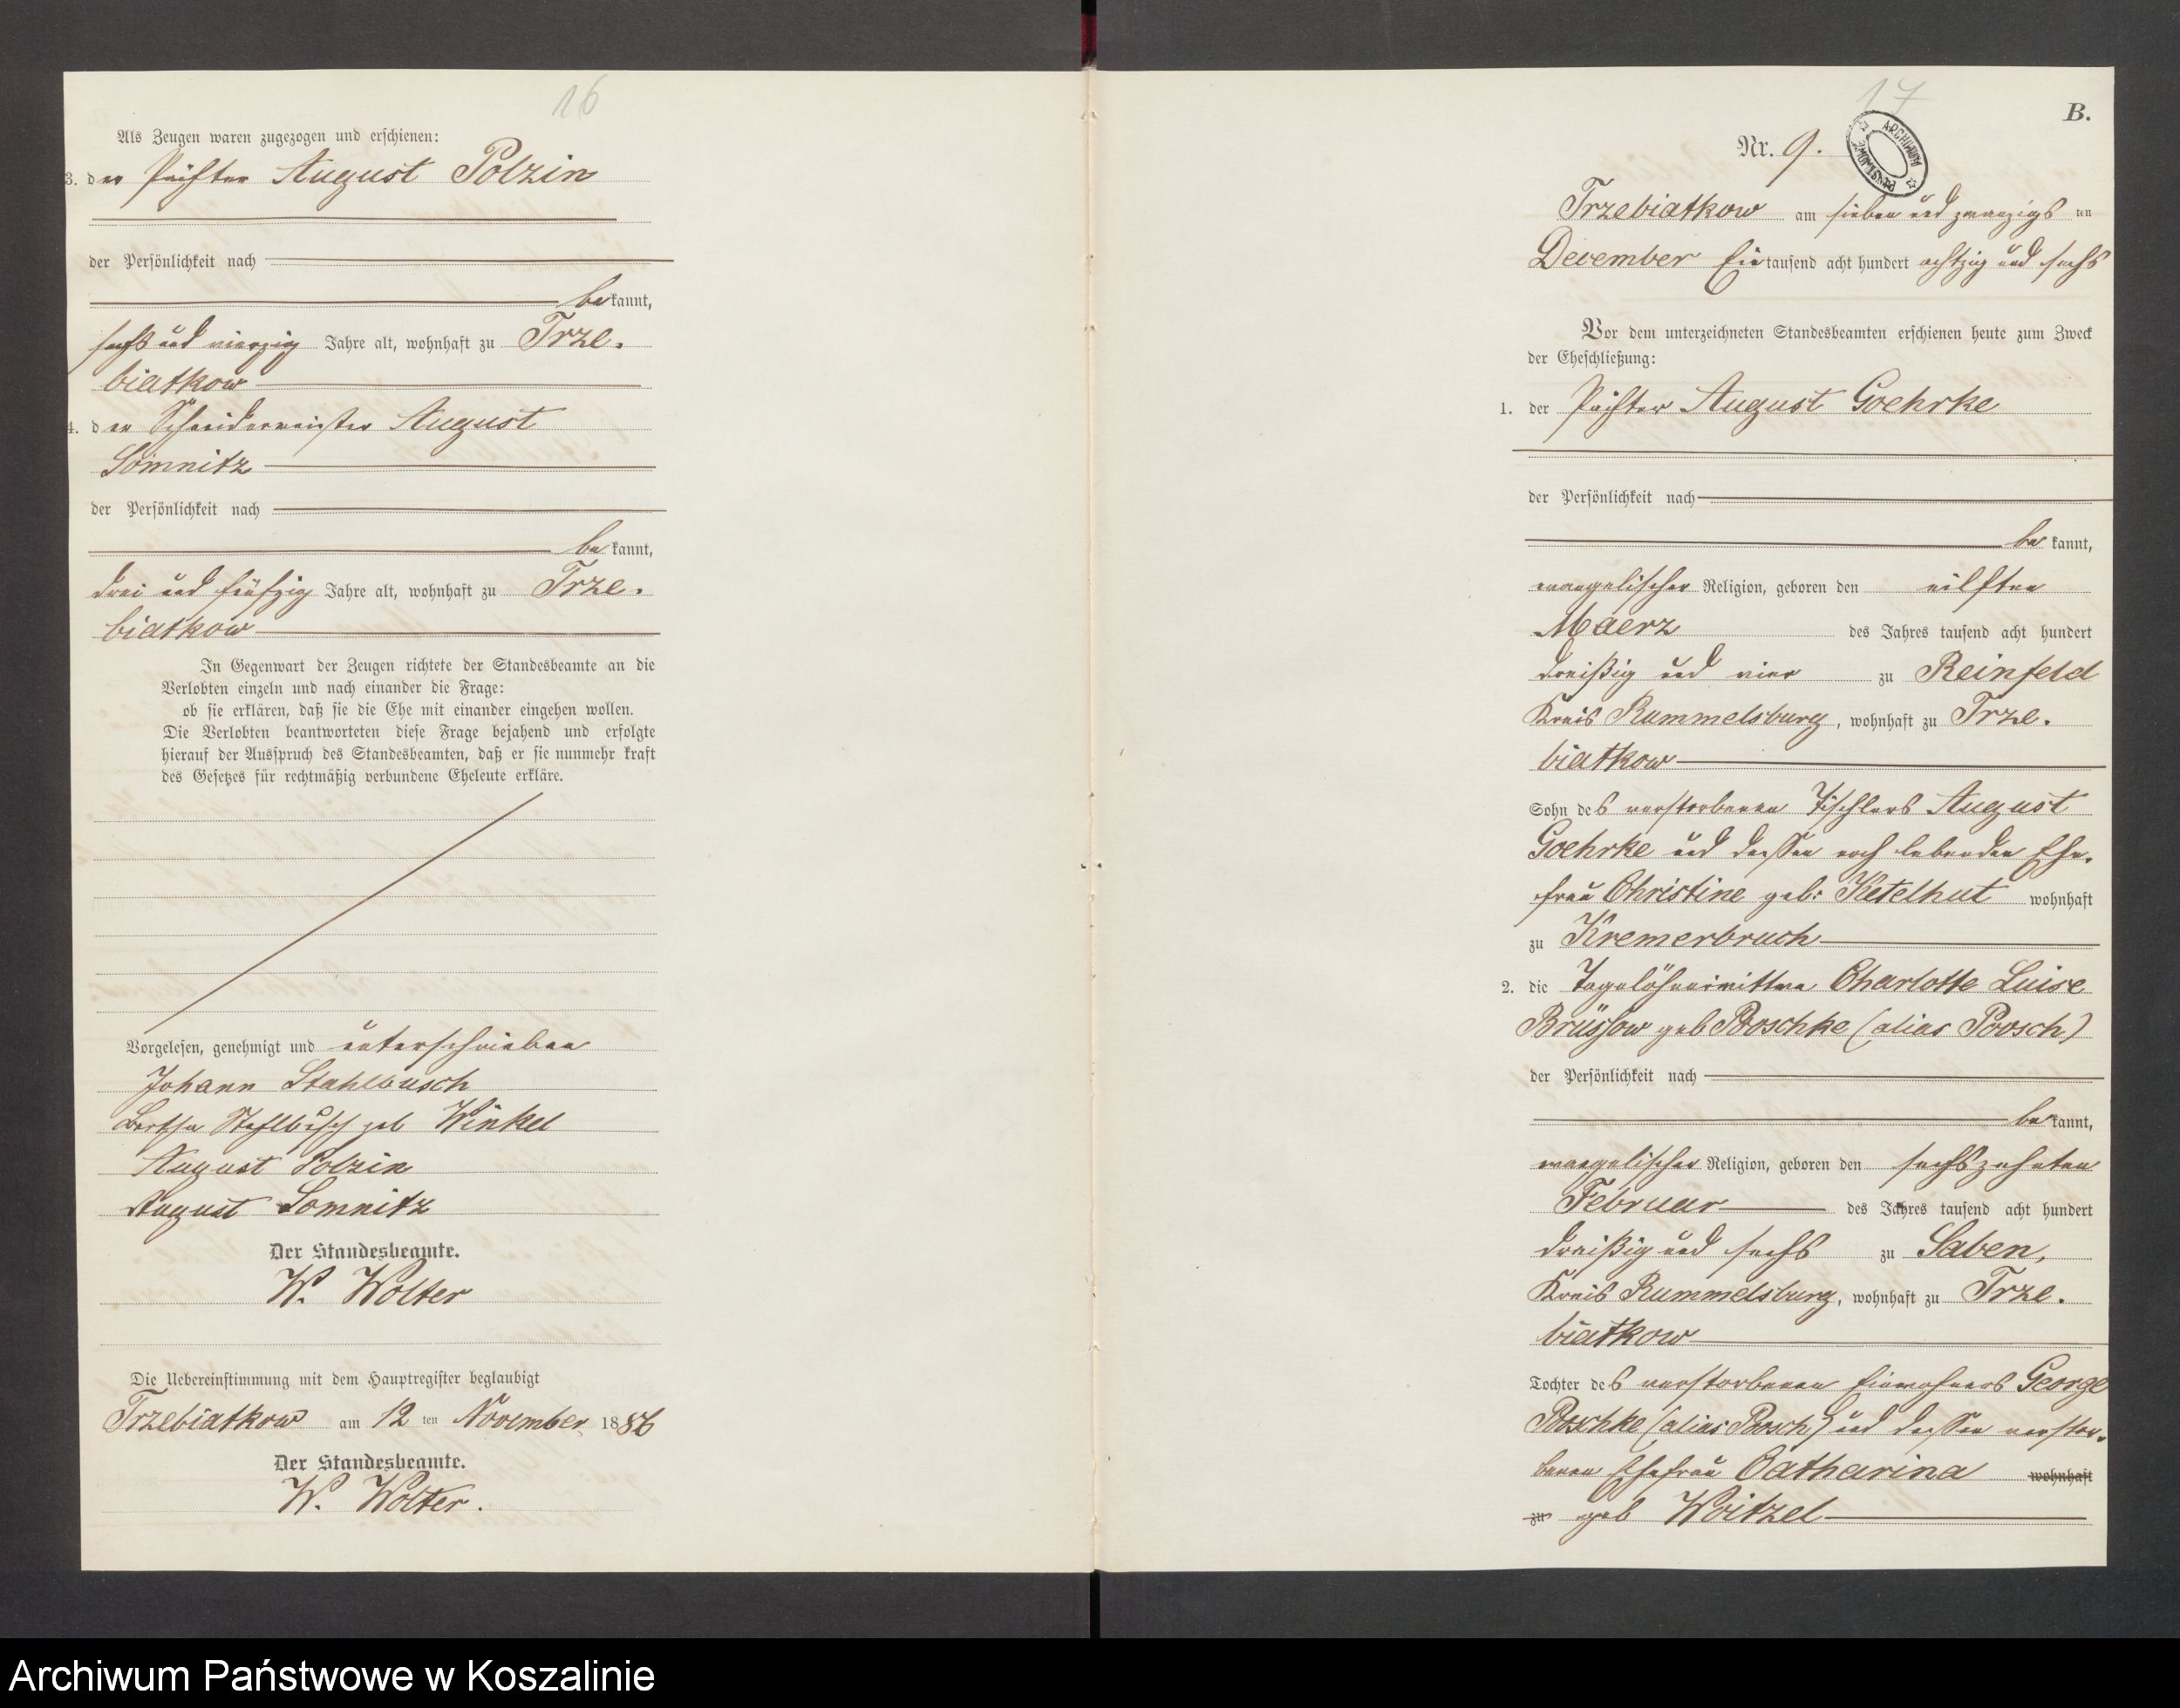 16
Als Zeugen waren zugezogen und erschienen:
3. der Pächter August Polzin
der Persönlichkeit nach
bekannt,
sechs und vierzig Jahre alt, wohnhaft zu Trze-
biatkow
4. der Schneidermeister August
Somnitz
der Persönlichkeit nach
bekannt,
drei und fünfzig Jahre alt, wohnhaft zu Trze-
biatkow
In Gegenwart der Zeugen richtete der Standesbeamte an die
Verlobten einzeln und nach einander die Frage:
ob sie erklären, daß sie die Ehe mit einander eingehen wollen.
Die Verlobten beantworteten diese Frage bejahend und erfolgte
hierauf der Ausspruch des Standesbeamten, daß er sie nunmehr kraft
des Gesetzes für rechtmäßig verbundene Eheleute erkläre.
Vorgelesen, genehmigt und unterschrieben
Johann Stahlbusch
Bertha Stahlbusch geb Winkel
August Polzin
August Somnitz
Der Standesbeamte.
W. Wolter
Die Uebereinstimmung mit dem Hauptregister beglaubigt
Trzebiatkow am 12 ten November 1886
Der Standesbeamte.
W. Wolter.
17
B.
ARCHIWUM PAŃSTWOWE
Nr. 9.
Trzebiatkow am sieben und zwanzigsten
December Eintausend acht hundert achtzig und sechs
Vor dem unterzeichneten Standesbeamten erschienen heute zum Zweck
der Eheschließung:
1. der Pächter August Goehrke
der Persönlichkeit nach
bekannt,
evangelischer Religion, geboren den eilften
Maerz des Jahres tausend acht hundert
dreißig und vier zu Reinfeld
Kreis Rummelsburg, wohnhaft zu Trze-
biatkow
Sohn des verstorbenen Tischlers August
Goehrke und dessen noch lebenden Ehe-
frau Christine geb: Ketelhut wohnhaft
zu Kremerbruch
2. die Tagelöhnerwittwe Charlotte Luise
Brüssow geb Pooschke (alias Poosch)
der Persönlichkeit nach
bekannt,
evangelischer Religion, geboren den sechszehnten
Februar des Jahres tausend acht hundert
dreißig und sechs zu Saben,
Kreis Rummelsburg, wohnhaft zu Trze-
biatkow
Tochter des verstorbenen Einwohners George
Pooschke (alias Poosch) und dessen verstor-
benen Ehefrau Catharina wohnhaft
zu geb Woitzel
Archiwum Państwowe w Koszalinie